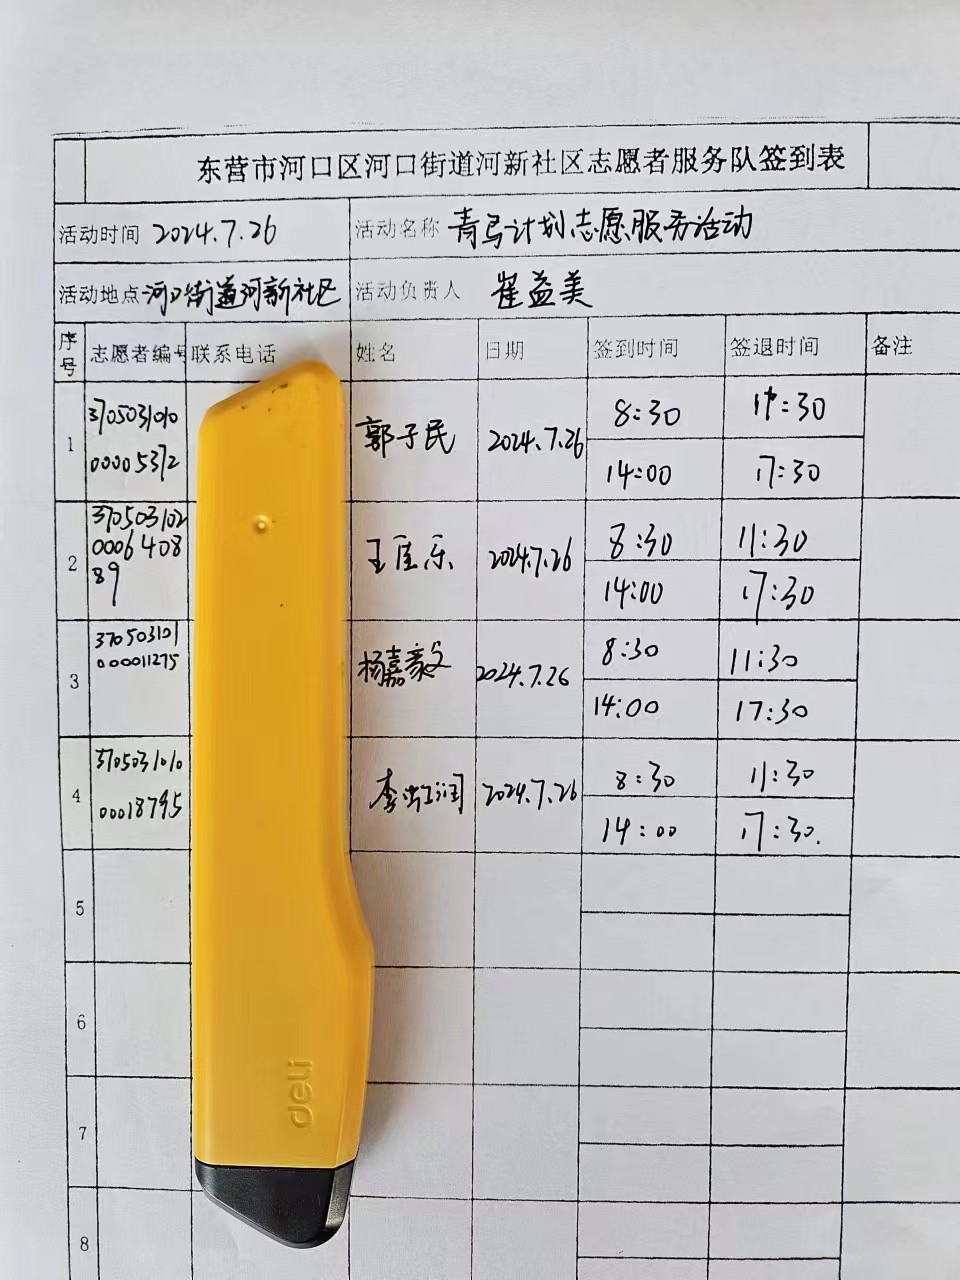 东营市河口区河口街道河新社区志愿者服务队签到表
活动时间 2024.7.26 活动名称 青马计划志愿服务活动
活动地点 河口街道河新社区 活动负责人 崔益美
序号 志愿者编号 联系电话 姓名 日期 签到时间 签退时间 备注
1 370503101000005372 郭子民 2024.7.26 8:30 11:30
14:00 17:30
2 370503102000640889 王佳乐 2024.7.26 8:30 11:30
14:00 17:30
3 370503101000011275 杨嘉豪 2024.7.26 8:30 11:30
14:00 17:30
4 370503101000018795 李 2024.7.26 8:30 11:30
14:00 17:30.
5
6
7
8
deli